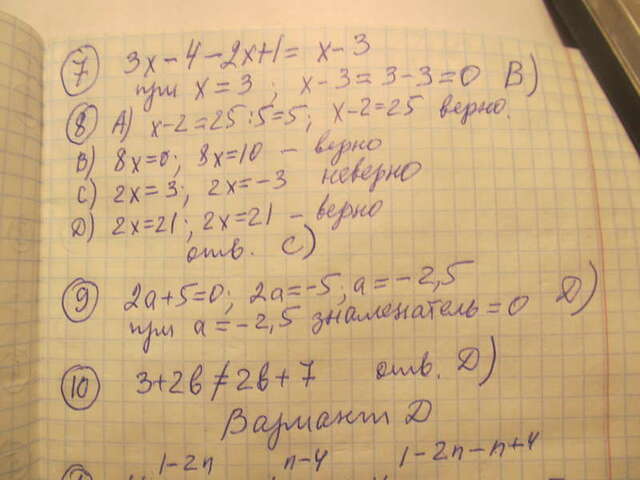 7 3x-4-2x+1= x-3
при x=3; x-3=3-3=0 В)
8 А) x-2=25:5=5; x-2=25 верно.
В) 8x=0; 8x=10 - верно
С) 2x=3; 2x=-3 неверно
D) 2x=21; 2x=21 - верно
отв. С)
9 2a+5=0; 2a=-5; a=-2,5
при a=-2,5 знаменатель=0 D)
10 3+2в≠2в+7 отв. D)
Вариант D
1-2n n-4 1-2n-n+4